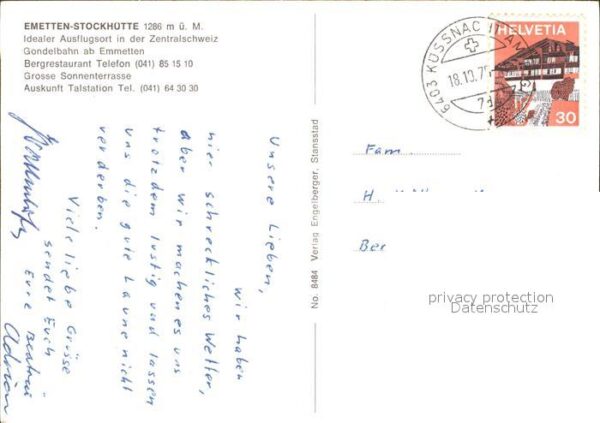 EMETTEN-STOCKHÜTTE 1286 m ü. M.
Idealer Ausflugsort in der Zentralschweiz
Gondelbahn ab Emmetten
Bergrestaurant Telefon (041) 85 15 10
Grosse Sonnenterrasse
Auskunft Talstation Tel. (041) 64 30 30
Unsere Lieben,
wir haben
hier schreckliches Wetter,
aber wir machen es uns
trotzdem lustig und lassen
uns die gute Laune nicht
verderben.
Viele liebe Grüsse
sendet Euch
Eure
Adrian
No. 8484 Verlag Engelberger, Stansstad
6403 KÜSSNACHT AM
18.10.75
HELVETIA
30
Fam.
H.
Ber
privacy protection
Datenschutz